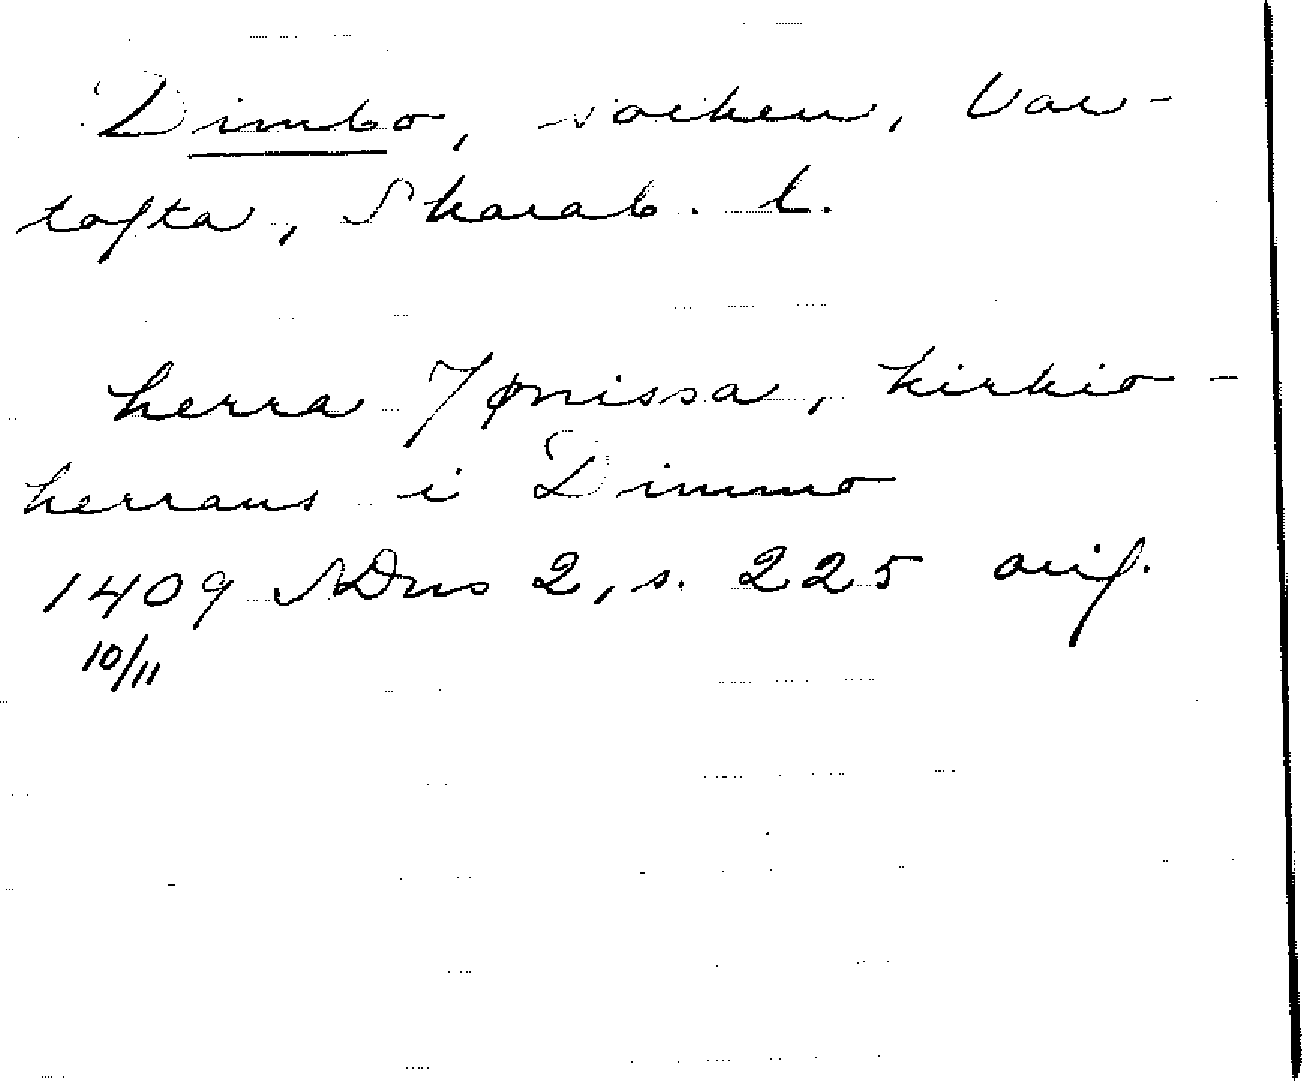 Dimbo, socken, Var-
tofta, Skarab. l.
herra Jønissa, kirkio-
herrans i Dimmo
1409 SDns 2, s. 225 avsf.
10/11